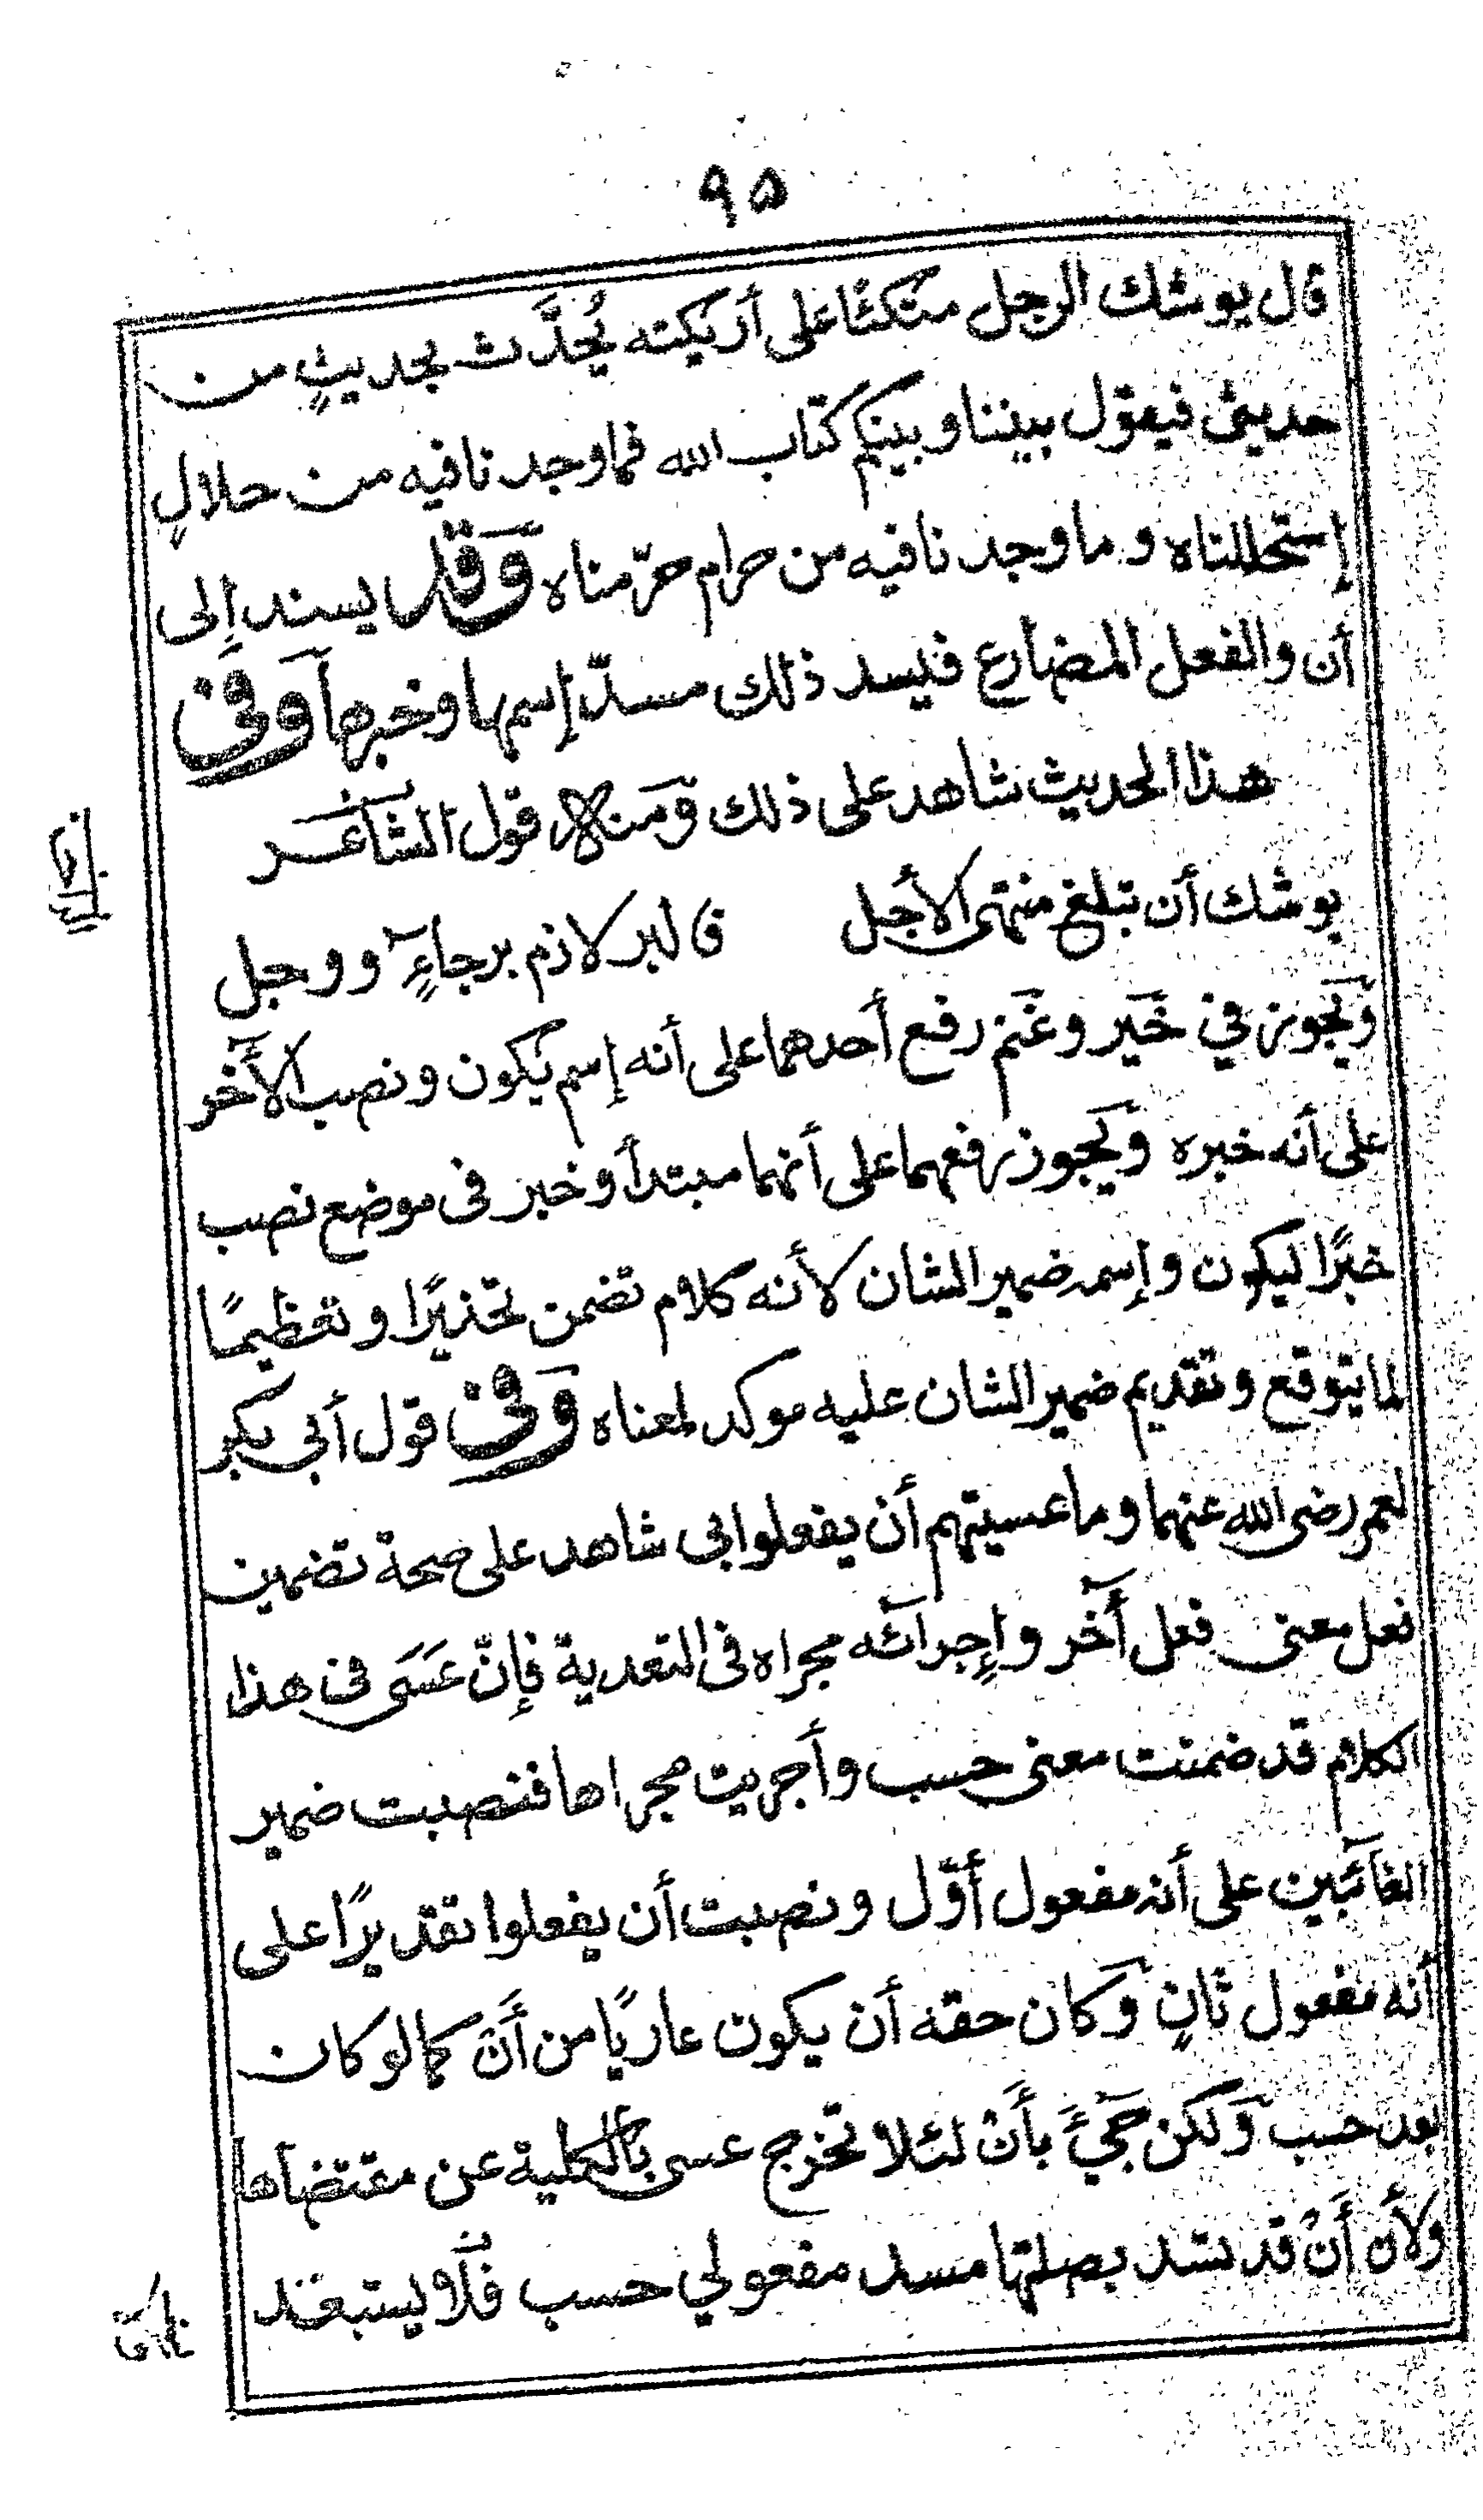 ٩٥
قال يوشك الرجل متكئًا على أريكته يُحدَّث بحديثٍ من
حديثى فيقول بيننا وبينكم كتاب الله فما وجدنا فيه من حلالٍ
إستحللناه وما وجدنا فيه من حرام حرّمناه وقد يسند إلى
أن والفعل المضارع فيسد ذلك مسدّ إسمها وخبرها وفى
هذا الحديث شاهد على ذلك ومنه قول الشاعر
يوشك أن تبلغ منتهى الأجل فالبر لازم برجاءٍ ووجل
ويجوز في خير وغنم رفع أحدهما على أنه إسم يكون ونصب الآخر
على أنه خبره ويجوز رفعهما على أنهما مبتدأ وخبر فى موضع نصب
خبرًا ليكون وإسمه ضمير الشان لأنه كلام تضمن تحذيرًا وتعظيمًا
لما يتوقع وتقديم ضمير الشان عليه موكد لمعناه وفى قول أبى بكر
لعمر رضى الله عنهما وما عسيتهم أن يفعلوا بى شاهد على صحة تضمين
فعل معنى فعل آخر وإجرائه مجراه فى التعدية فإنّ عسى فى هذا
الكلام قد ضمنت معنى حسب وأجريت مجراها فنصبت ضمير
الغائبين على أنه مفعول أوّل ونصبت أن يفعلوا تقديرًا على
أنه مفعول ثانٍ وكان حقه أن يكون عاريًا من أَنْ كما لو كان
بعد حسب ولكن جئَ بأَنْ لئلا تخرج عسى بالكلية عن مقتضاها
ولأن أَنْ قد تسد بصلتها مسد مفعولي حسب فلا يستبعد